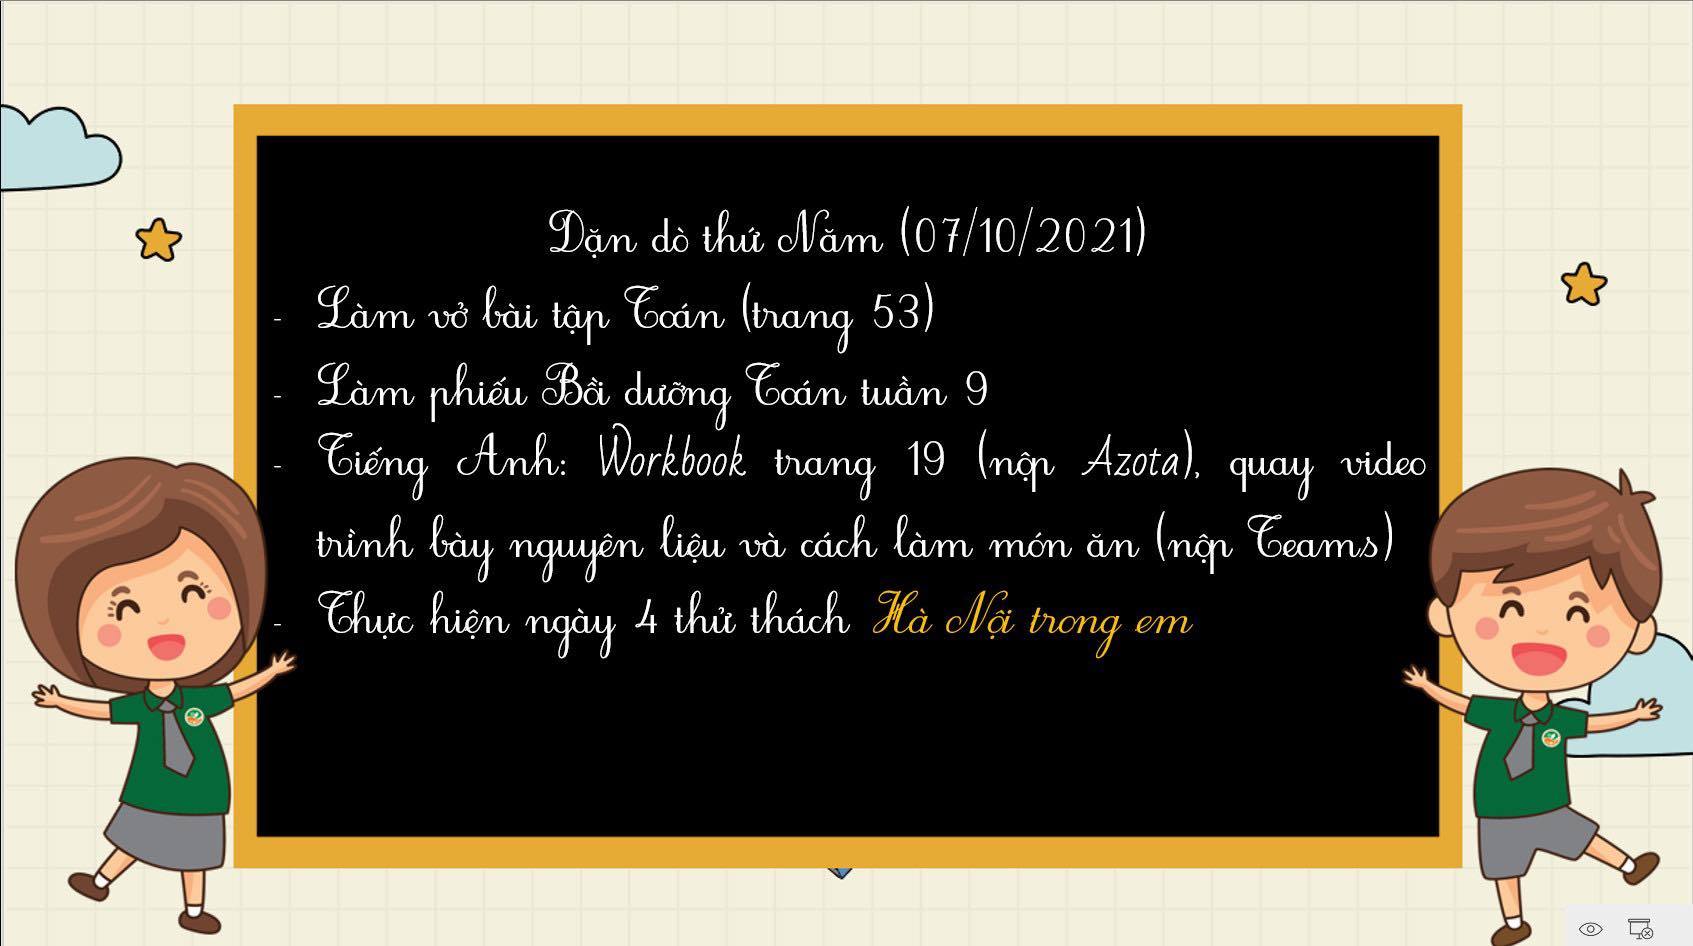 Dặn dò thứ Năm (07/10/2021)
- Làm vở bài tập Toán (trang 53)
- Làm phiếu Bồi dưỡng Toán tuần 9
- Tiếng Anh: Workbook trang 19 (nộp Azota), quay video
trình bày nguyên liệu và cách làm món ăn (nộp Teams)
- Thực hiện ngày 4 thử thách Hà Nội trong em